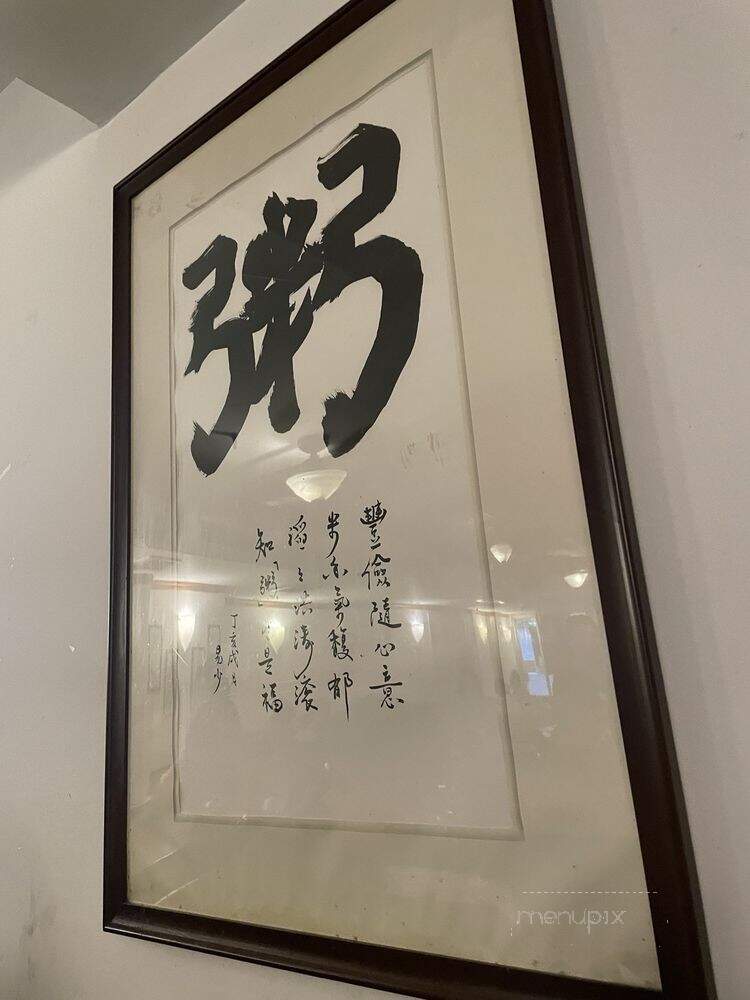 粥
豐儉隨心意
米水氣馥郁
滔滔洪濤滾
知「粥」是福
丁亥
易少
menupix